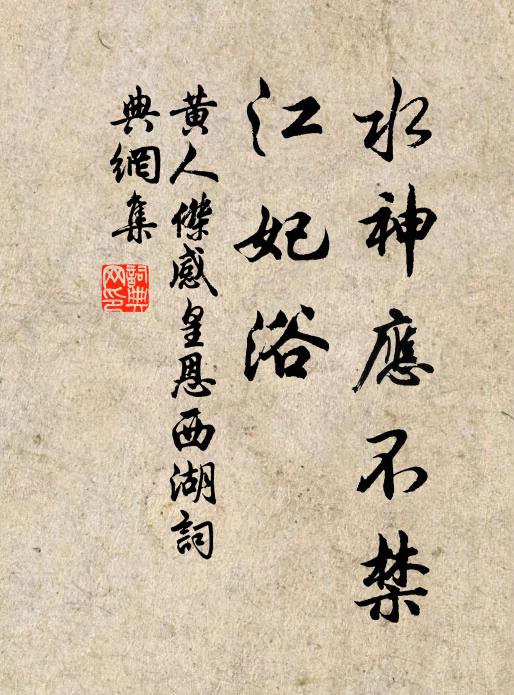 水神應不禁
江妃浴
黃人傑感皇恩西湖詞
典網集
詞典網印